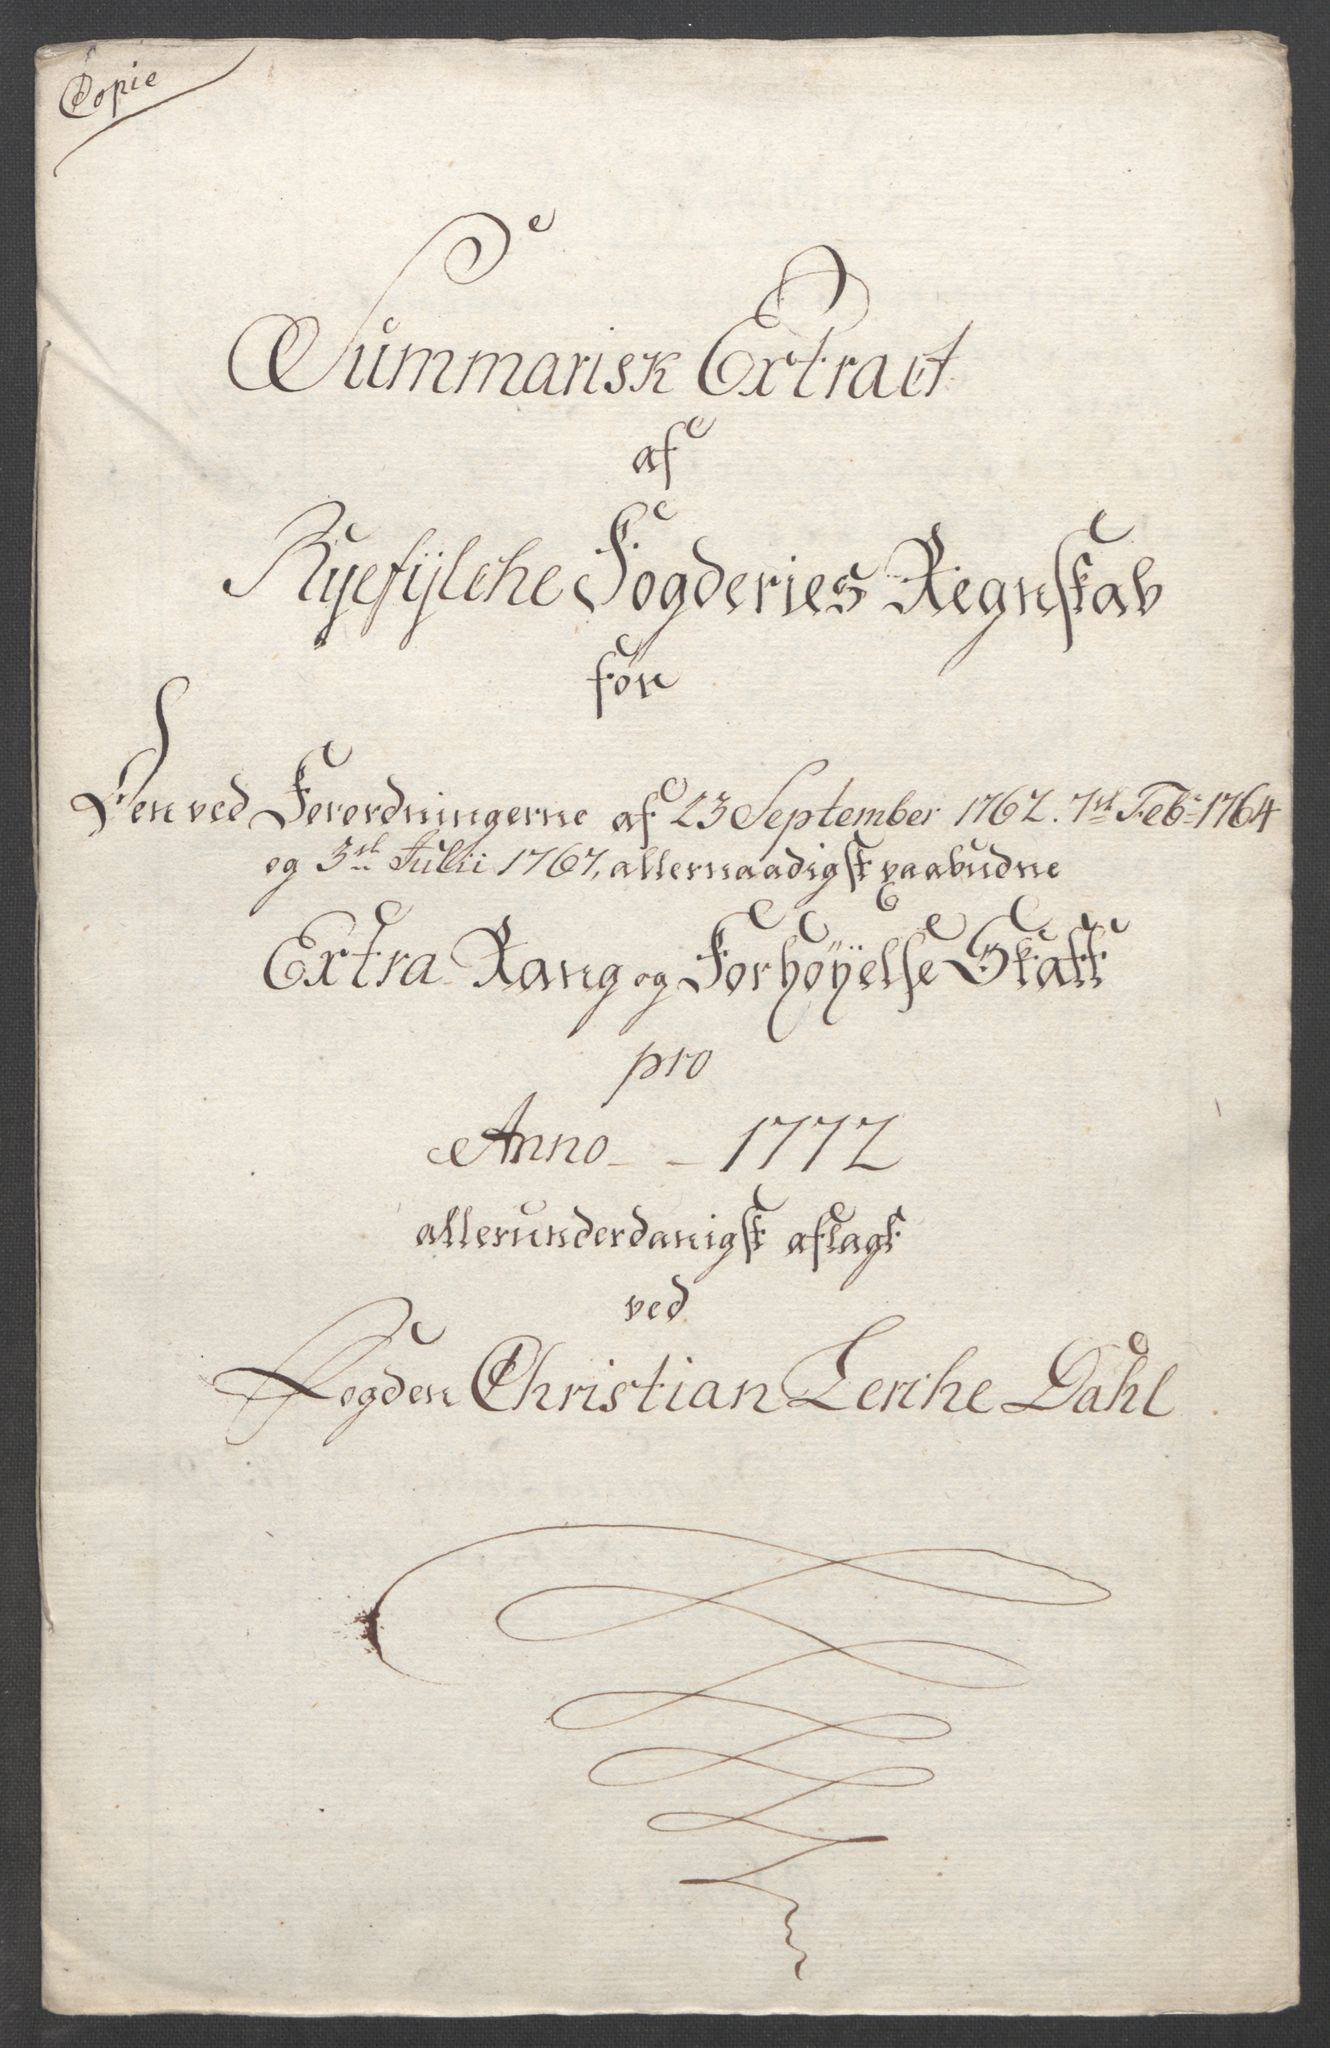 Copie
Summarisk Extract
af
Ryefylche Fogderies Regnskab
for
Den ved Forordningerne af 23 September 1762. 7de Feb: 1764
og 3de Julii 1767, allernaadigst paabudne
Extra Rang og Forhøyelse Skatt
pro
Anno - - 1772
allerunderdanigst aflagt
ved
Fogden Christian Lerche Dahl